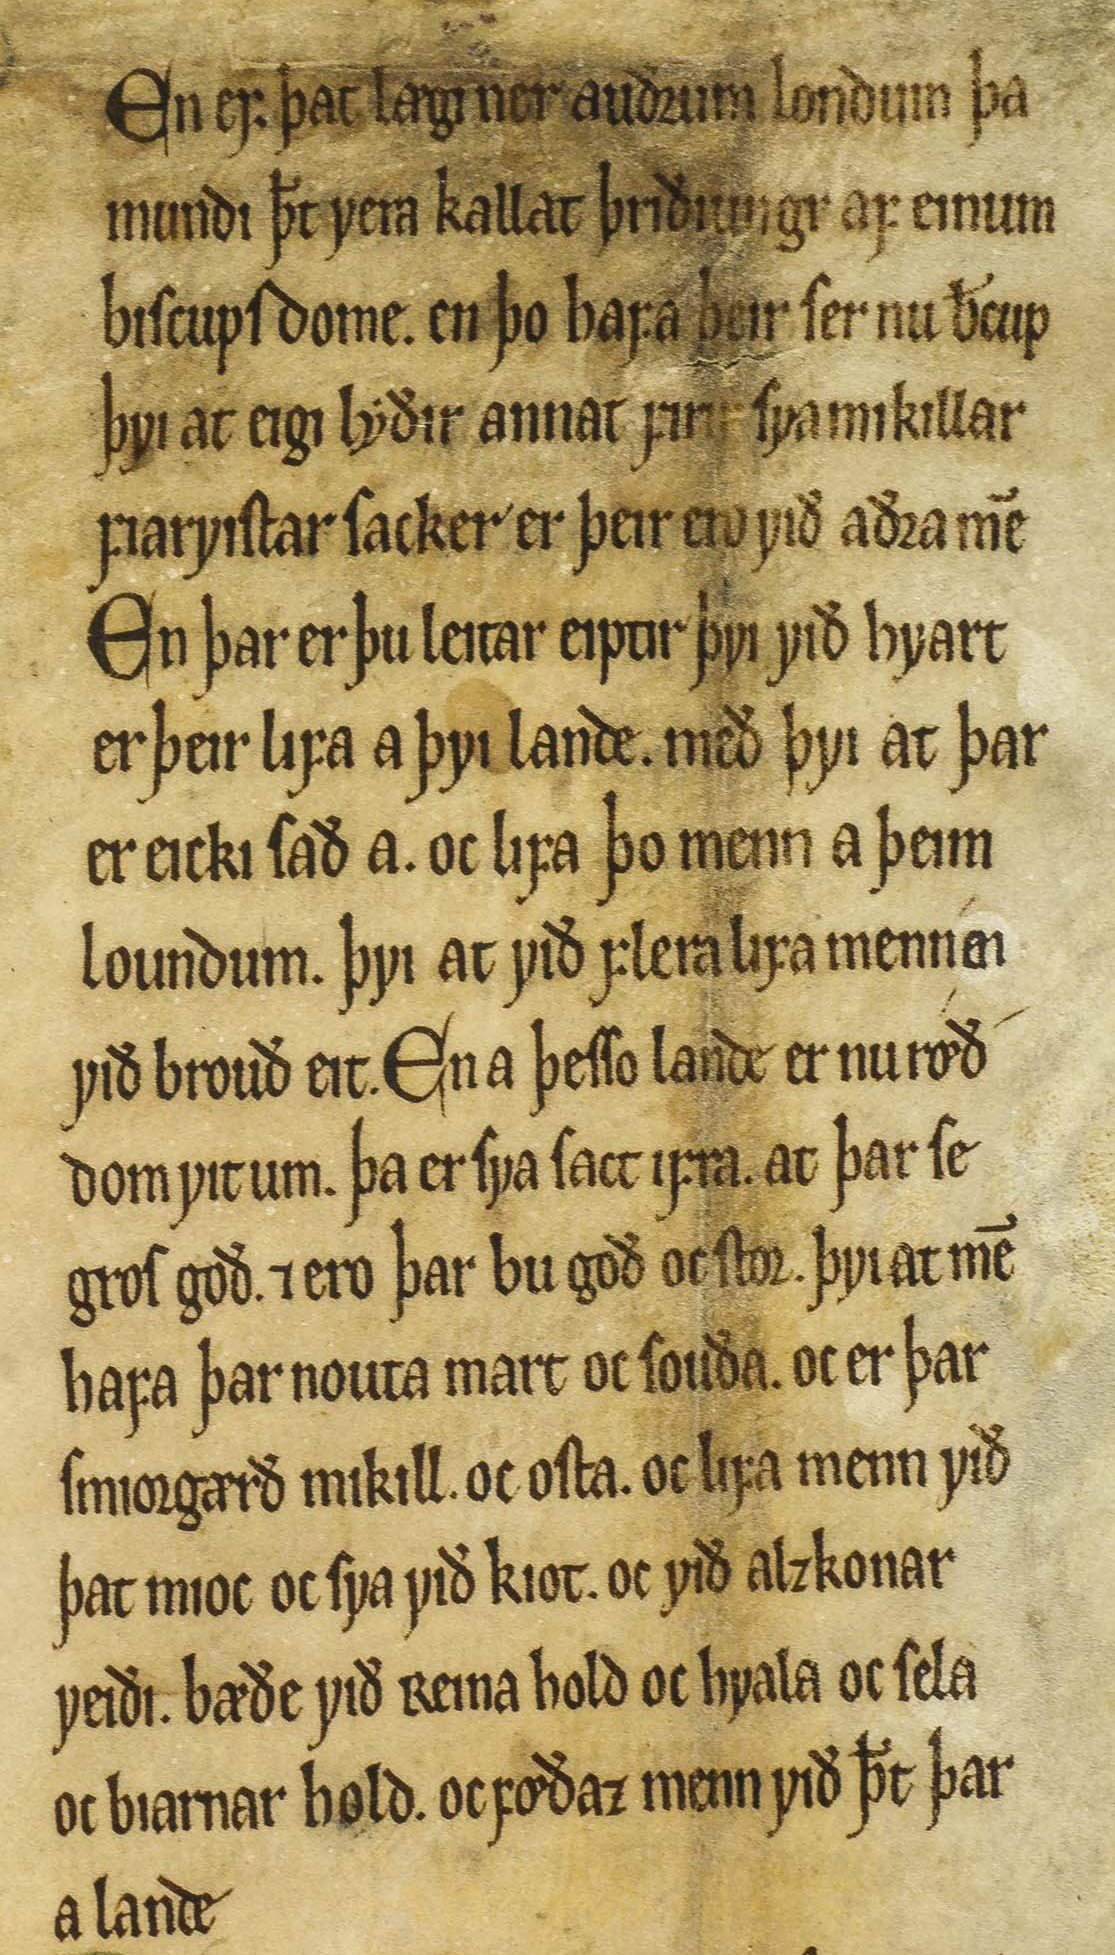 En eꝼ þat lægi ner auðꝛum londum þa
mundi þ̅t ꝩera kallat þriðiungr aꝼ einum
biſcupſdome. en þo haꝼa þeir ſer nu b̅cup
þꝩi at eigi lyðir annat ꝼirir ſꝩa mikillar
ꝼiarꝩiſtar ſacker er þeir ero ꝩið aðꝛa me̅
En þar er þu leitar eiptir þꝩi ꝩið hꝩart
er þeir liꝼa a þꝩi lande. með þꝩi at þar
er eicki ſað a. oc liꝼa þo menn a þeim
loundum. þꝩi at ꝩið ꝼlera liꝼa menn en
ꝩið brouð eit. En a þeſſo lande er nu rœð
dom ꝩit um. þa er ſꝩa ſact iꝼra. at þar ſe
groſ goð. ⁊ ero þar bu goð oc ſtoꝛ. þꝩi at me̅
haꝼa þar nouta mart oc ſouða. oc er þar
ſmioꝛgærð mikill. oc oſta. oc liꝼa menn ꝩið
þat mioc oc ſꝩa ꝩið kiot. oc ꝩið alzkonar
ꝩeiði. bæðe ꝩið ʀeina hold oc hꝩala oc ſela
oc biarnar hold. oc ꝼœðaz menn ꝩið þ̅t þar
a lande